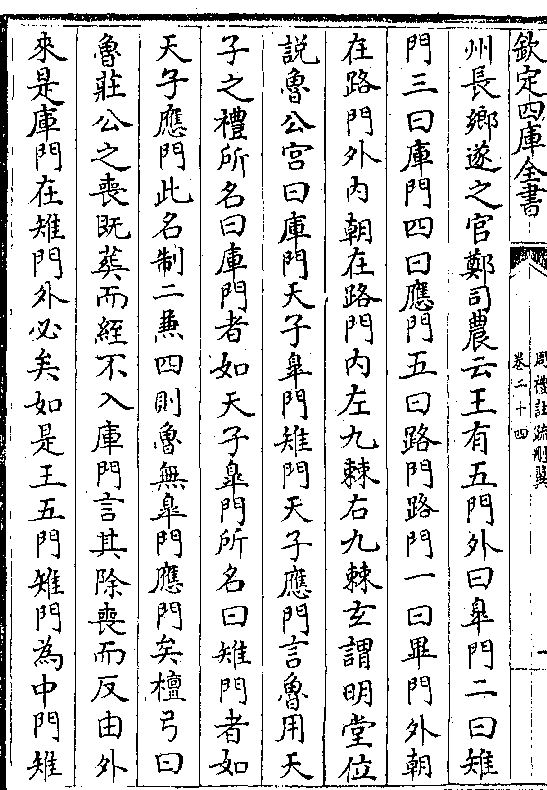 欽定四庫全書
周禮註疏刪翼
卷二十四
州長鄉遂之官鄭司農云王有五門外曰臯門二曰雉
門三曰庫門四曰應門五曰路門路門一曰畢門外朝
在路門外内朝在路門内左九棘右九棘玄謂明堂位
説魯公宫曰庫門天子臯門雉門天子應門言魯用天
子之禮所名曰庫門者如天子臯門所名曰雉門者如
天子應門此名制二兼四則魯無臯門應門矣檀弓曰
魯莊公之喪既葬而絰不入庫門言其除喪而反由外
來是庫門在雉門外必矣如是王五門雉門為中門雉